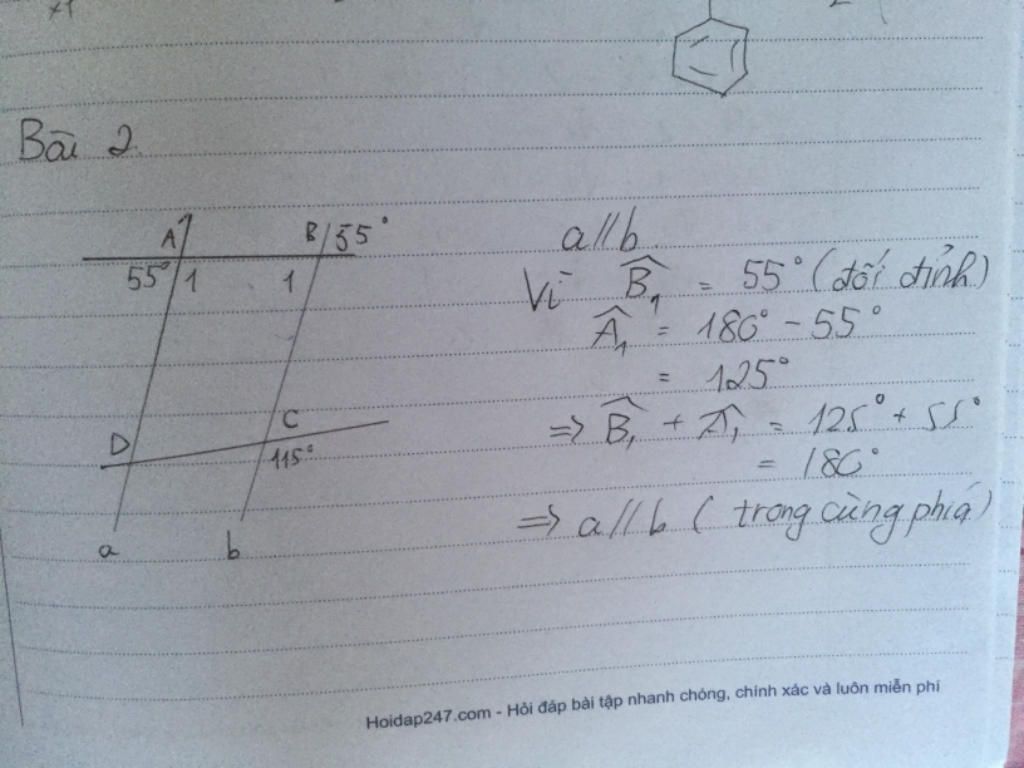 Bài 2.
A
B
55°
55°
1
1
a // b.
Vì B̂₁ = 55° (đối đỉnh)
Â₁ = 180° - 55°
= 125°
=> B̂₁ + Â₁ = 125° + 55°
= 180°
=> a // b ( trong cùng phía)
C
D
115°
a
b
Hoidap247.com - Hỏi đáp bài tập nhanh chóng, chính xác và luôn miễn phí